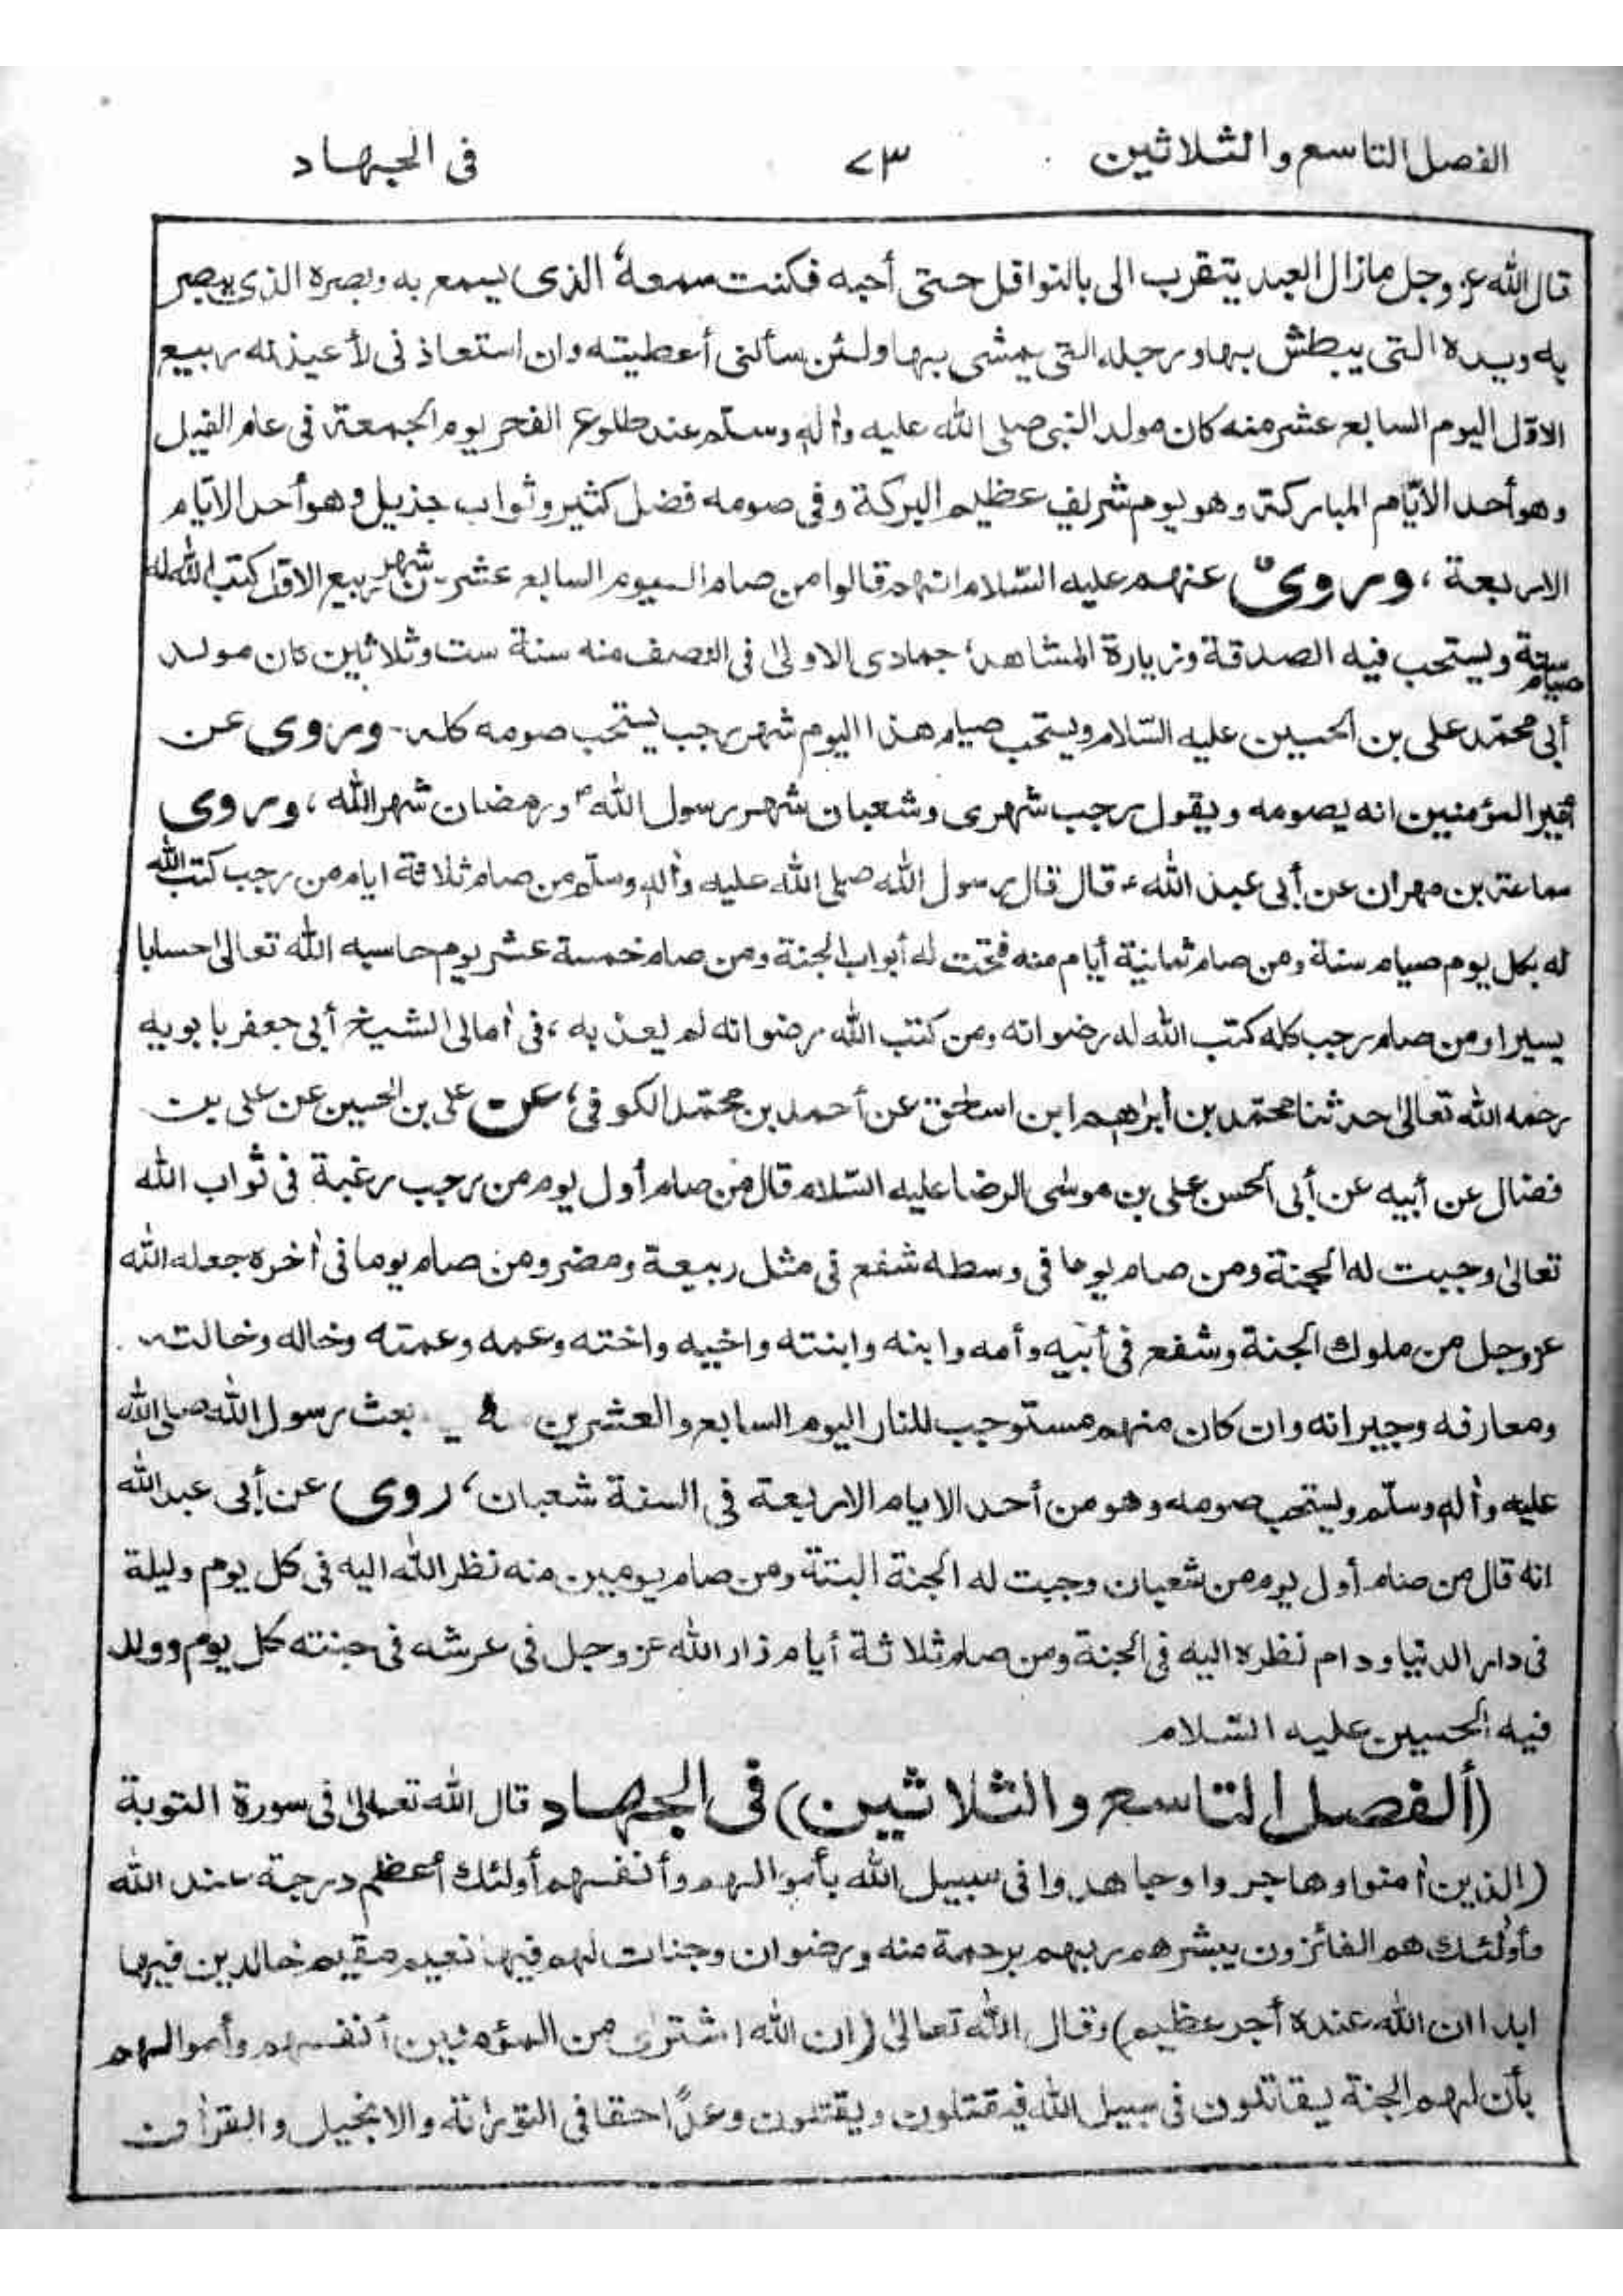 الفصل التاسع والثلاثين ٧٣ فى الجهاد
قال الله عز وجل مازال العبد يتقرب الى بالنوافل حتى أحبه فكنت سمعه الذى يسمع به وبصره الذى يبصر
به ويده التى يبطش بها ورجله التى يمشى بها ولئن سألنى أعطيته وان استعاذ نى لأعيذنه ربيع
الاوّل اليوم السابع عشر منه كان مولد النبى صلى الله عليه وأله وسلّم عند طلوع الفجر يوم الجمعة فى عام الفيل
وهو أحد الايّام المباركة وهو يوم شريف عظيم البركة وفى صومه فضل كثير وثواب جذيل وهو أحد الايّام
الاربعة، وروى عنهم عليه السّلام انهم قالوا من صام اليوم السابع عشر من شهر ربيع الاوّل كتب الله له
صيام سنة ويستحب فيه الصدقة وزيارة المشاهد، جمادى الاولىٰ فى النصف منه سنة ست وثلاثين كان مولد
أبى محمّد على بن الحسين عليه السّلام ويستحب صيام هذا اليوم شهر رجب يستحب صومه كله - وروى عن
أمير المؤمنين انه يصومه ويقول رجب شهرى وشعبان شهر رسول الله ورمضان شهر الله، وروى
سماعة بن مهران عن أبى عبد الله ع قال قال رسول الله صلى الله عليه وأله وسلّم من صام ثلاثة ايام من رجب كتب الله
له بكل يوم صيام سنة ومن صام ثمانية أيام منه فتحت له أبواب الجنة ومن صام خمسة عشر يوم حاسبه الله تعالىٰ حسابا
يسيرا ومن صام رجب كله كتب الله له رضوانه ومن كتب الله رضوانه لم يعذ به، فى أمالى الشيخ أبى جعفر بابويه
رحمه الله تعالىٰ حدثنا محمّد بن ابراهيم ابن اسحٰق عن أحمد بن محمّد الكوفى، عن على بن الحسين عن على بن
فضال عن أبيه عن أبى الحسن على بن موسٰى الرضا عليه السّلام قال من صام أول يوم من رجب رغبة فى ثواب الله
تعالىٰ وجبت له الجنة ومن صام يوما فى وسطه شفع فى مثل ربيعة ومضر ومن صام يوما فى أخره جعله الله
عز وجل من ملوك الجنة وشفع فى أبيه وأمه وابنه وابنته واخيه واخته وعمه وعمته وخاله وخالته
ومعارفه وجيرانه وان كان منهم مستوجب للنار اليوم السابع والعشرين بعث رسول الله صلى الله
عليه وأله وسلّم ويستحب صومه وهو من أحد الايام الاربعة فى السنة شعبان، روى عن أبى عبد الله
انه قال من صام أول يوم من شعبان وجبت له الجنة البتة ومن صام يومين منه نظر الله اليه فى كل يوم وليلة
فى دار الدنيا ودام نظره اليه فى الجنة ومن صام ثلاثة أيام زار الله عز وجل فى عرشه فى جنته كل يوم وولد
فيه الحسين عليه السّلام
(ألفصل التاسع والثلاثين) فى الجهاد قال الله تعالىٰ فى سورة التوبة
(الذين أمنوا وهاجروا وجاهدوا فى سبيل الله بأموالهم وأنفسهم أولئك أعظم درجة عند الله
وأولٰئك هم الفائزون يبشرهم ربهم برحمة منه ورضوان وجنات لهم فيها نعيم مقيم خالدين فيها
ابدا ان الله عنده أجر عظيم) وقال الله تعالىٰ (ان الله اشترٰى من المؤمنين أنفسهم وأموالهم
بأن لهم الجنة يقاتلون فى سبيل الله فيقتلون ويقتلون وعدًا حقا فى التورٰىة والانجيل والقرأن